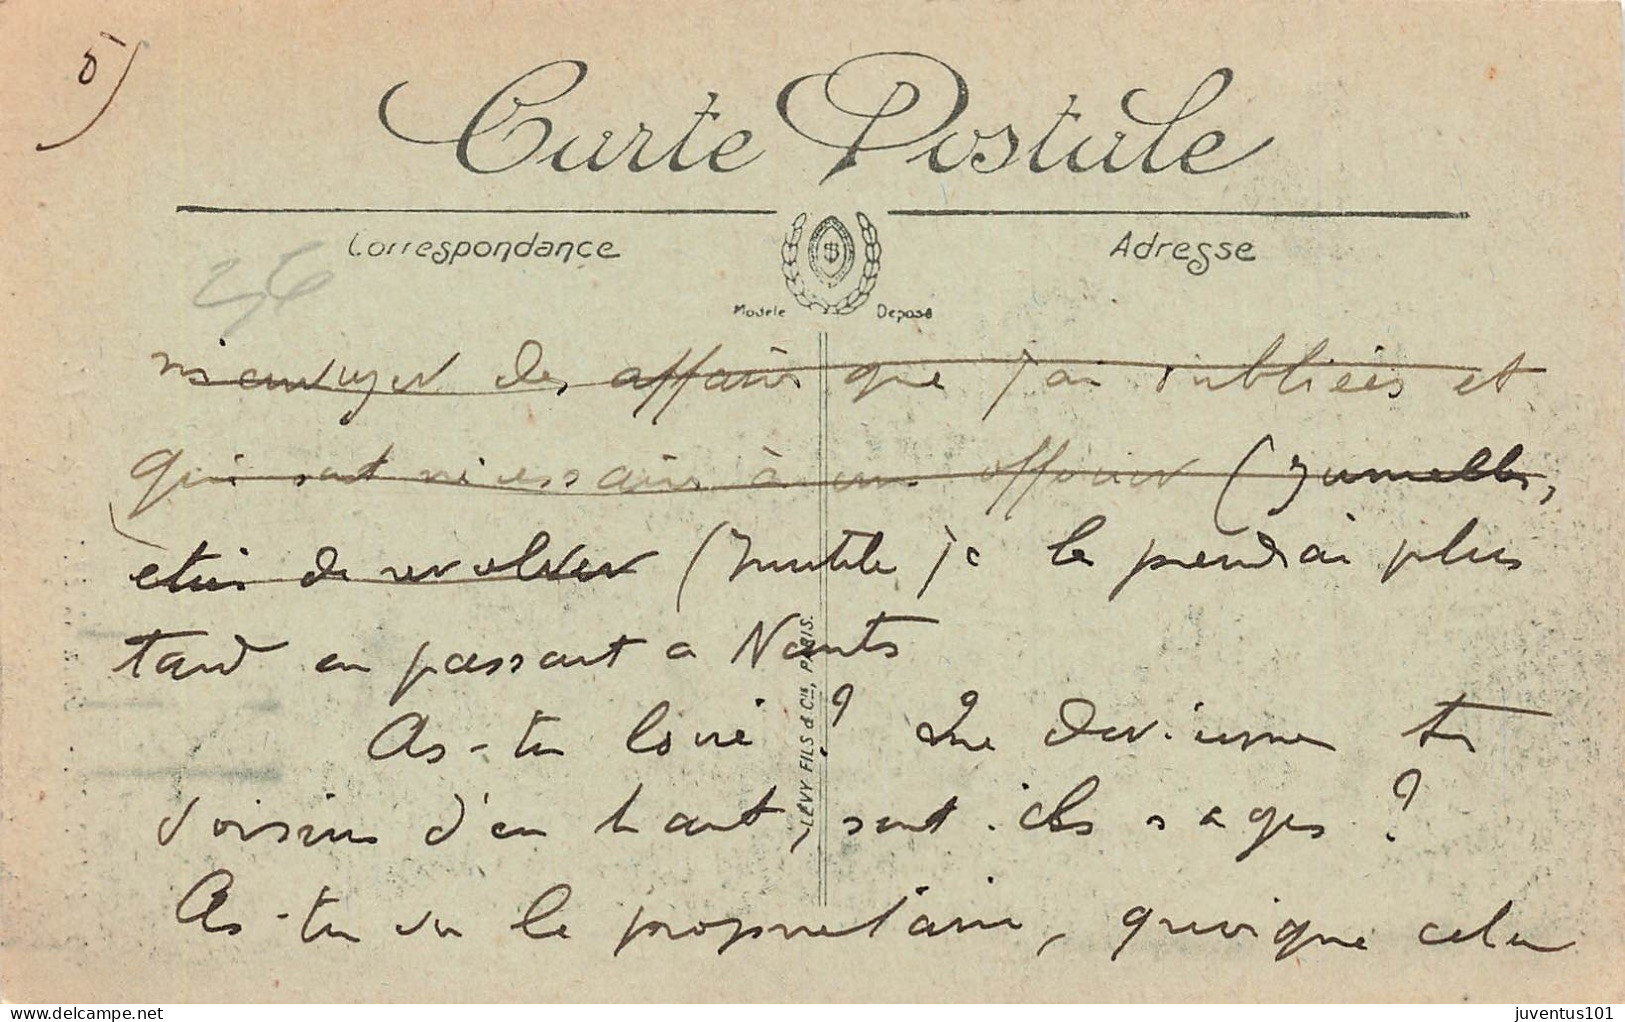 5)
Carte Postale
Correspondance
Adresse
36
Modèle Déposé
m'envoyer des affaires que j'ai oubliées et
qui sont nécessaires à un officier (Jumelles,
étui de revolver (Inutile je le prendrai plus
tard en passant à Nantes
As-tu loué ? Que deviennent tes
voisins d'en haut, sont-ils sages ?
As-tu vu le propriétaire, quoique cela
LÉVY FILS & Cie, PARIS.
www.delcampe.net
juventus101